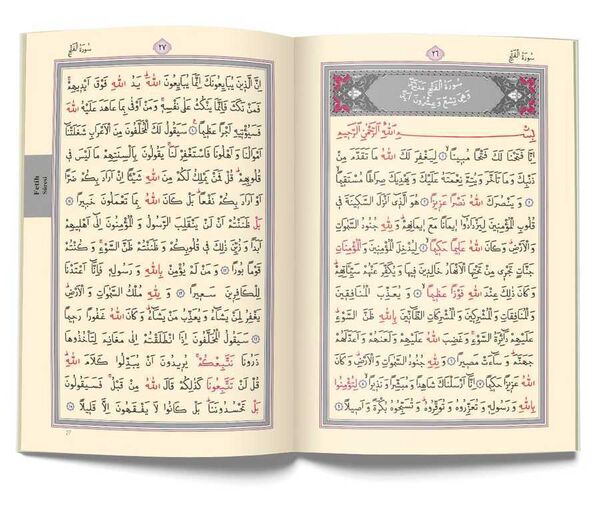 سُورَةُ الْفَتْحِ
٢٦
سُورَةُ الْفَتْحِ مَدَنِيَّةٌ
وَهِيَ تِسْعٌ وَعِشْرُونَ اٰيَةً
بِسْمِ اللّٰهِ الرَّحْمٰنِ الرَّحِيمِ
اِنَّا فَتَحْنَا لَكَ فَتْحًا مُبِينًاۙ ﴿١﴾ لِيَغْفِرَ لَكَ اللّٰهُ مَا تَقَدَّمَ مِنْ
ذَنْبِكَ وَمَا تَاَخَّرَ وَيُتِمَّ نِعْمَتَهُ عَلَيْكَ وَيَهْدِيَكَ صِرَاطًا مُسْتَقِيمًاۙ
﴿٢﴾ وَيَنْصُرَكَ اللّٰهُ نَصْرًا عَزِيزًا ﴿٣﴾ هُوَ الَّذٓي اَنْزَلَ السَّكِينَةَ فِي
قُلُوبِ الْمُؤْمِنِينَ لِيَزْدَادُٓوا اِيمَانًا مَعَ اِيمَانِهِمْۜ وَلِلّٰهِ جُنُودُ السَّمٰوَاتِ
وَالْاَرْضِۜ وَكَانَ اللّٰهُ عَلِيمًا حَكِيمًاۙ ﴿٤﴾ لِيُدْخِلَ الْمُؤْمِنِينَ وَالْمُؤْمِنَاتِ
جَنَّاتٍ تَجْرِي مِنْ تَحْتِهَا الْاَنْهَارُ خَالِدِينَ فِيهَا وَيُكَفِّرَ عَنْهُمْ سَيِّـَٔاتِهِمْۜ
وَكَانَ ذٰلِكَ عِنْدَ اللّٰهِ فَوْزًا عَظِيمًاۙ ﴿٥﴾ وَيُعَذِّبَ الْمُنَافِقِينَ
وَالْمُنَافِقَاتِ وَالْمُشْرِكِينَ وَالْمُشْرِكَاتِ الظَّٓانِّينَ بِاللّٰهِ ظَنَّ السَّوْءِۜ
عَلَيْهِمْ دَٓائِرَةُ السَّوْءِۚ وَغَضِبَ اللّٰهُ عَلَيْهِمْ وَلَعَنَهُمْ وَاَعَدَّ لَهُمْ
جَهَنَّمَۜ وَسَٓاءَتْ مَصِيرًا ﴿٦﴾ وَلِلّٰهِ جُنُودُ السَّمٰوَاتِ وَالْاَرْضِۜ وَكَانَ
اللّٰهُ عَزِيزًا حَكِيمًا ﴿٧﴾ اِنَّٓا اَرْسَلْنَاكَ شَاهِدًا وَمُبَشِّرًا وَنَذِيرًاۙ ﴿٨﴾ لِتُؤْمِنُوا
بِاللّٰهِ وَرَسُولِهِ وَتُعَزِّرُوهُ وَتُوَقِّرُوهُۜ وَتُسَبِّحُوهُ بُكْرَةً وَاَصِيلًا ﴿٩﴾
٢٧
سُورَةُ الْفَتْحِ
اِنَّ الَّذِينَ يُبَايِعُونَكَ اِنَّمَا يُبَايِعُونَ اللّٰهَۜ يَدُ اللّٰهِ فَوْقَ اَيْدِيهِمْۚ
فَمَنْ نَكَثَ فَاِنَّمَا يَنْكُثُ عَلٰى نَفْسِهِۚ وَمَنْ اَوْفٰى بِمَا عَاهَدَ عَلَيْهُ اللّٰهَ
فَسَيُؤْتِيهِ اَجْرًا عَظِيمًا ﴿١٠﴾ سَيَقُولُ لَكَ الْمُخَلَّفُونَ مِنَ الْاَعْرَابِ شَغَلَتْنَٓا
اَمْوَالُنَا وَاَهْلُونَا فَاسْتَغْفِرْ لَنَاۚ يَقُولُونَ بِاَلْسِنَتِهِمْ مَا لَيْسَ فِي
قُلُوبِهِمْۜ قُلْ فَمَنْ يَمْلِكُ لَكُمْ مِنَ اللّٰهِ شَيْـًٔا اِنْ اَرَادَ بِكُمْ ضَرًّا
اَوْ اَرَادَ بِكُمْ نَفْعًاۜ بَلْ كَانَ اللّٰهُ بِمَا تَعْمَلُونَ خَبِيرًا ﴿١١﴾
بَلْ ظَنَنْتُمْ اَنْ لَنْ يَنْقَلِبَ الرَّسُولُ وَالْمُؤْمِنُونَ اِلٰٓى اَهْلِيهِمْ
اَبَدًا وَزُيِّنَ ذٰلِكَ فِي قُلُوبِكُمْ وَظَنَنْتُمْ ظَنَّ السَّوْءِۚ وَكُنْتُمْ
قَوْمًا بُورًا ﴿١٢﴾ وَمَنْ لَمْ يُؤْمِنْ بِاللّٰهِ وَرَسُولِهِ فَاِنَّٓا اَعْتَدْنَا
لِلْكَافِرِينَ سَعِيرًا ﴿١٣﴾ وَلِلّٰهِ مُلْكُ السَّمٰوَاتِ وَالْاَرْضِۜ
يَغْفِرُ لِمَنْ يَشَٓاءُ وَيُعَذِّبُ مَنْ يَشَٓاءُۜ وَكَانَ اللّٰهُ غَفُورًا رَحِيمًا
﴿١٤﴾ سَيَقُولُ الْمُخَلَّفُونَ اِذَا انْطَلَقْتُمْ اِلٰى مَغَانِمَ لِتَأْخُذُوهَا
ذَرُونَا نَتَّبِعْكُمْۚ يُرِيدُونَ اَنْ يُبَدِّلُوا كَلَامَ اللّٰهِۜ
قُلْ لَنْ تَتَّبِعُونَا كَذٰلِكُمْ قَالَ اللّٰهُ مِنْ قَبْلُۚ فَسَيَقُولُونَ
بَلْ تَحْسُدُونَنَاۜ بَلْ كَانُوا لَا يَفْقَهُونَ اِلَّا قَلِيلًا ﴿١٥﴾
Fetih
Sûresi
27